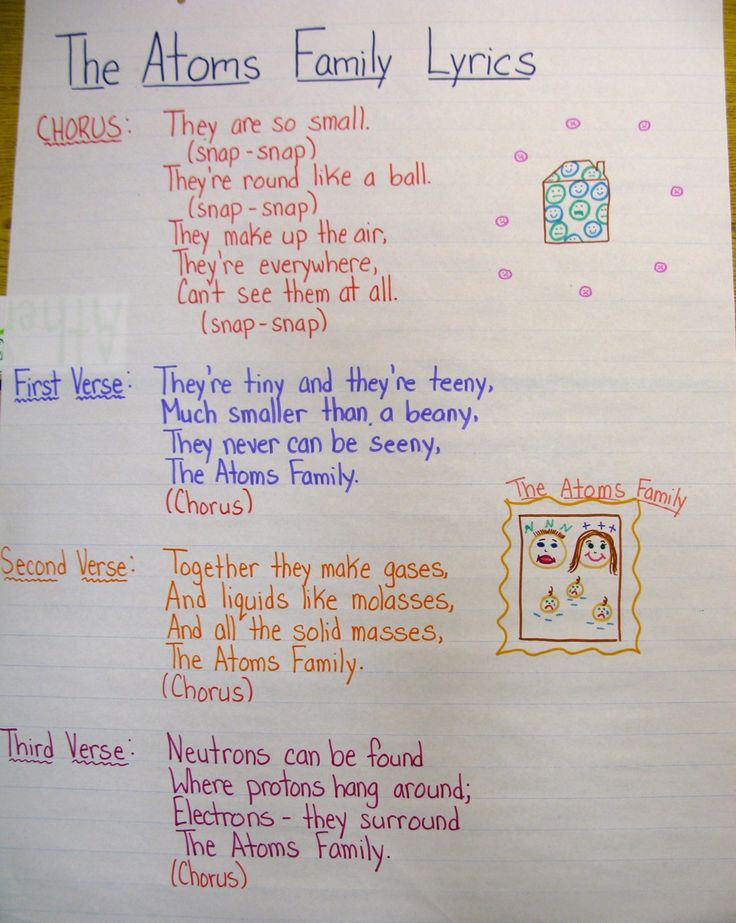 The Atoms Family Lyrics
CHORUS: They are so small.
(snap-snap)
They're round like a ball.
(snap-snap)
They make up the air,
They're everywhere,
Can't see them at all.
(snap-snap)
First Verse: They're tiny and they're teeny,
Much smaller than a beany,
They never can be seeny,
The Atoms Family.
(Chorus)
The Atoms Family
N N N + + +
Second Verse: Together they make gases,
And liquids like molasses,
And all the solid masses,
The Atoms Family.
(Chorus)
Third Verse: Neutrons can be found
Where protons hang around;
Electrons - they surround
The Atoms Family.
(Chorus)